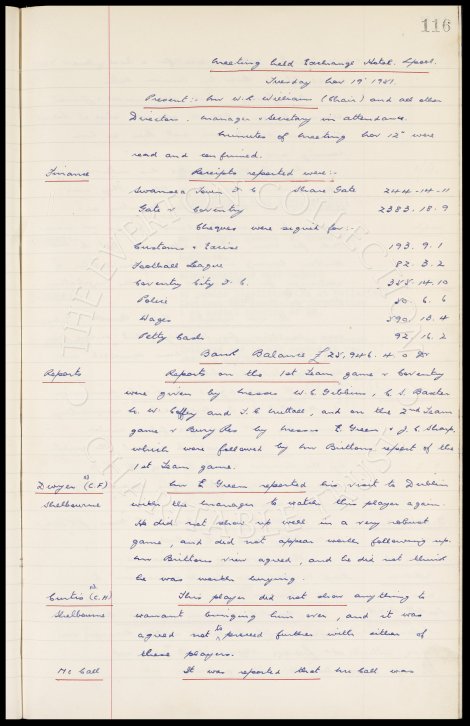 116
Meeting held Exchange Hotel. L'pool.
Tuesday Nov 19' 1951.
Present:- Mr W.R. Williams (Chair) and all other
Directors. Manager & Secretary in attendance.
Minutes of Meeting Nov 12th were
read and confirmed.
Finance Receipts reported were:-
Swansea Town F.C. Share Gate 244-14-11
Gate v Coventry 2383.18.9
Cheques were signed for:-
Customs & Excise 193.9.1
Football League 82.3.2
Coventry City F.C. 355.14.10
Police 50.6.6
Wages 590.13.4
Petty Cash 92.16.2
Bank Balance £25,946.4.0 Dr
Reports Reports on the 1st Team game v Coventry
were given by Messrs W.C. Gibbins, C.S. Baxter
W.W. Coffey and T.C. Nuttall, and on the 2nd Team
game v Bury Res by Messrs E. Green, & J.C. Sharp,
which were followed by Mr Brittons report of the
1st Team game.
Dwyer (C.F) Mr E Green reported his visit to Dublin
Shelbourne with the Manager to watch this player again.
He did not show up well in a very robust
game, and did not appear worth following up.
Mr Brittons view agreed, and he did not think
he was worth buying.
Curtis (C.H) This player did not show anything to
Shelbourne warrant bringing him over, and it was
agreed not to proceed further with either of
these players.
McCall It was reported that McCall was
THE EVERTON COLLECTION
CHARITABLE TRUST